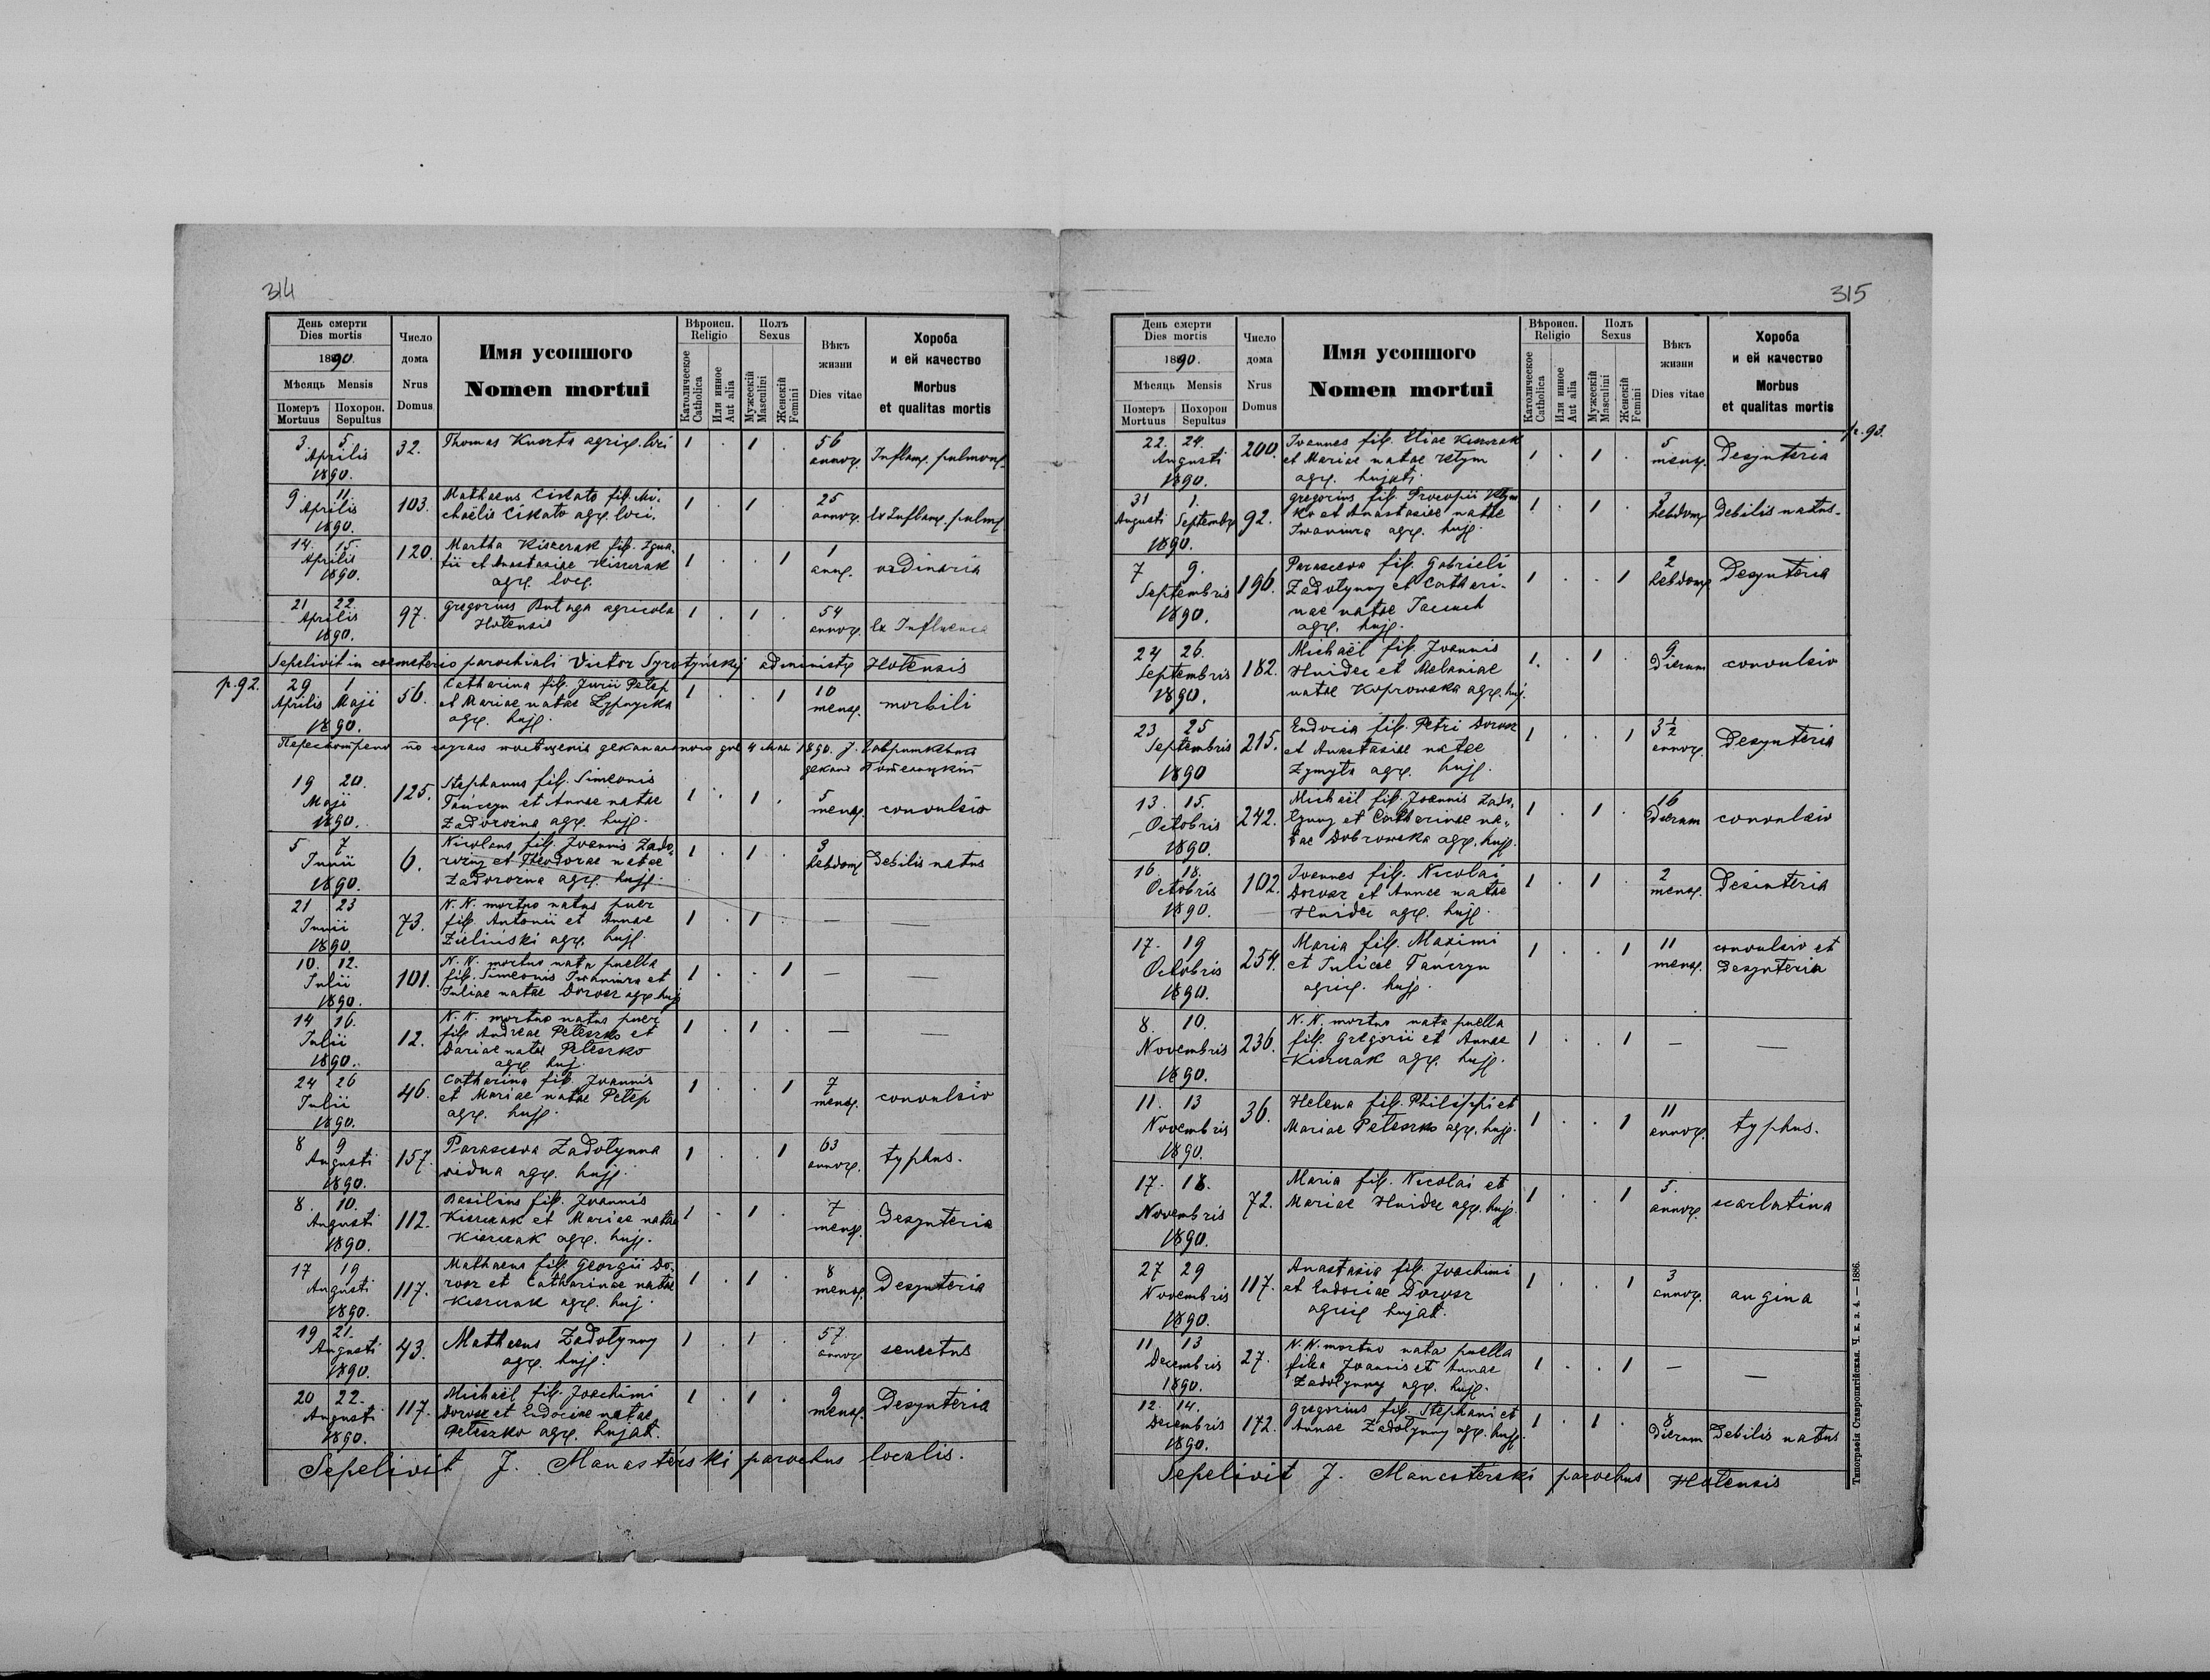 314
День смерти
Dies mortis
1890.
Мѣсяць Mensis
Померъ Похорон.
Mortuus Sepultus
Число
дома
Nrus
Domus
Имя усопшого
Nomen mortui
Вѣроисп.
Religio
Католическое
Catholica
Или инное
Aut alia
Полъ
Sexus
Мужескій
Masculini
Женскій
Femini
Вѣкъ
жизни
Dies vitae
Хороба
и ей качество
Morbus
et qualitas mortis
3. 5. Aprilis 1890. 32. Thomas agric. loci 1 . 1 . 56 annor. Inflam. pulmon.
9. 11. Aprilis 1890. 103. Mathaeus Cikato fil. Mi-
chaëlis Cikato agr. loci. 1 . 1 . 25 annor. Ex Inflam. pulm.
14. 15. Aprilis 1890. 120. Martha Kiszczak fil. Igna-
tii et Anastasiae Kiszczak
agr. loci. 1 . . 1 1 anni. ordinaria
21 22. Aprilis 1890. 97. Gregorius agricola
Hotensis 1 . 1 . 54 annor. Ex Influenca
Sepelivit in coemeterio parochiali Victor Syrotyńskij administr. Hotensis
p. 92.
29 Aprilis 1 Maji 1890. 56. Catharina fil. Jurii Petep
et Mariae natae
agr. huj. 1 . . 1 10 mens. morbili
1890. J.
19 20. Maji 1890. 125. Stephanus fil. Simeonis
Tańczyn et Annae natae
Zadorożna agr. huj. 1 . 1 . 5 mens. convulsio
5 7 Junii 1890. 6. Nicolaus fil. Joannis Zado-
rożny et Theodorae natae
Zadorożna agr. huj. 1 . 1 . 3 hebdom. Debilis natus
21 23 Junii 1890. 73. N. N. mortuo natus puer
fil. Antonii et Annae
Zieliński agr. huj. 1 . 1 . — —
10. 12. Julii 1890. 101. N. N. mortuo nata puella
fil. Simeonis et
Juliae natae Dorosz agr. huj. 1 . . 1 — —
14 16. Julii 1890. 12. N. N. mortuo natus puer
fil. Andreae Peteszko et
Dariae natae Peteszko
agr. huj. 1 . 1 . — —
24 26 Julii 1890. 46. Catharina fil. Joannis
et Mariae natae Petep
agr. huj. 1 . . 1 7 mens. convulsio
8 9 Augusti 1890. 157. Parasceva Zadolynna
vidua agr. huj. 1 . . 1 63 annor. typhus.
8. 10. Augusti 1890. 112. Basilius fil. Joannis
Kiszczak et Mariae natae
Kiszczak agr. huj. 1 . 1 . 7 mens. Desynteria
17 19 Augusti 1890. 117. Mathaeus fil. Georgii Do-
rosz et Catharinae natae
Kiszczak agr. huj. 1 . 1 . 8 mens. Desynteria
19 21. Augusti 1890. 43. Mathaeus Zadolynny
agr. huj. 1 . 1 . 57 annor. senectus
20 22. Augusti 1890. 117. Michaël fil. Joachimi
Dorosz et Eudociae natae
Peteszko agr. hujat. 1 . 1 . 9 mens. Desynteria
Sepelivit J. Manasterski parochus localis.
315
День смерти
Dies mortis
1890.
Мѣсяць Mensis
Померъ Похорон
Mortuus Sepultus
Число
дома
Nrus
Domus
Имя усопшого
Nomen mortui
Вѣроисп.
Religio
Католическое
Catholica
Или инное
Aut alia
Полъ
Sexus
Мужескій
Masculini
Женскій
Femini
Вѣкъ
жизни
Dies vitae
Хороба
и ей качество
Morbus
et qualitas mortis
p. 93.
22. 24. Augusti 1890. 200. Joannes fil. Eliae Kiszczak
et Mariae natae
agr. hujati. 1 . 1 . 5 mens. Desynteria
31 Augusti 1. Septembr. 1890. 92. Gregorius fil. Procopii
et Anastasiae natae
agr. huj. 1 . 1 . 3 hebdom. Debilis natus.
7 9. Septembris 1890. 196. Parasceva fil. Gabrieli
Zadolynny et Cathari-
nae natae
agr. huj. 1 . . 1 2 hebdom. Desynteria
24 26. Septembris 1890. 182. Michaël fil. Joannis
Hnidec et Melaniae
natae Koprowska agr. huj. 1. . 1 . 9 Dierum convulsio
23 25 Septembris 1890 215. Eudocia fil. Petri Dorosz
et Anastasiae natae
agr. huj. 1 . . 1 3½ annor. Desynteria
13. 15. Octobris 1890. 242. Michaël fil. Joannis Zado-
lynny et Catharinae na-
tae Dobrowska agr. huj. 1 . 1 . 16 Dierum convulsio
16 18. Octobris 1890. 102. Joannes fil. Nicolai
Dorosz et Annae natae
Hnidec agr. huj. 1 . 1 . 2 mens. Desinteria
17. 19 Octobris 1890. 254. Maria fil. Maximi
et Juliae Tańczyn
agric. huj. 1 . . 1 11 mens. convulsio et
Desynteria
8. 10. Novembris 1890. 236. N. N. mortuo nata puella
fil. Gregorii et Annae
Kiszczak agr. huj. 1 . . 1 — —
11. 13 Novembris 1890. 36. Helena fil. Philippi et
Mariae Peteszko agr. huj. 1 . . 1 11 annor. typhus.
17. 18. Novembris 1890. 72. Maria fil. Nicolai et
Mariae Hnidec agr. huj. 1 . . 1 5. annor. scarlatina
27 29 Novembris 1890. 117. Anastasia fil. Joachimi
et Eudociae Dorosz
agric. hujat. 1 . . 1 3 annor. angina
11 13 Decembris 1890. 27. N. N. mortuo nata puella
filia Joannis et Annae
Zadolynny agr. huj. 1 . . 1 — —
12. 14. Decembris 1890. 172. Gregorius fil. Stephani et
Annae Zadolynny agr. huj. 1 . 1 . 8 Dierum Debilis natus
Sepelivit J. Manasterski parochus Hotensis
Типографія Ставропигійская. Ч. к. з. 4. — 1886.